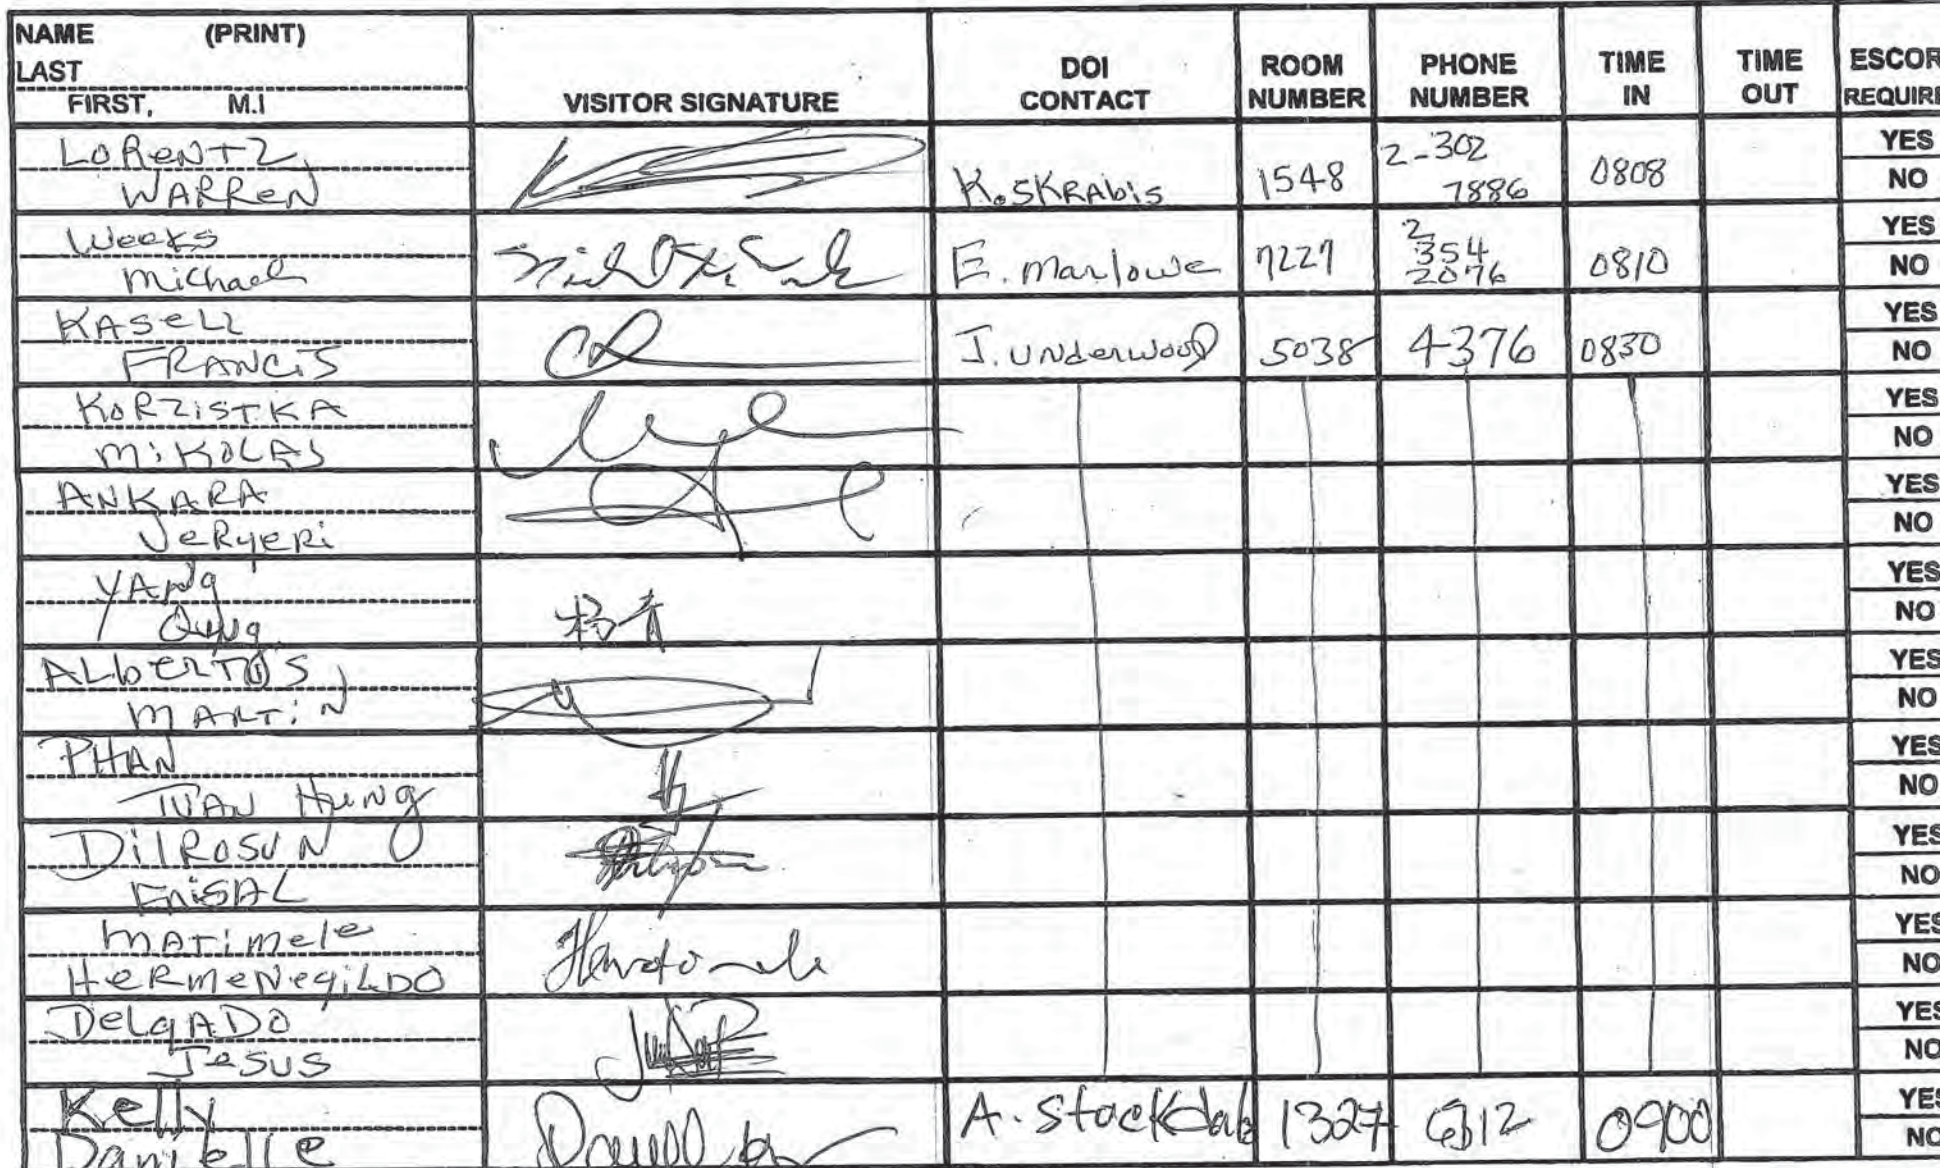 NAME (PRINT)
LAST
FIRST, M.I
VISITOR SIGNATURE
DOI
CONTACT
ROOM
NUMBER
PHONE
NUMBER
TIME
IN
TIME
OUT
ESCOR
REQUIRE
LORENTZ
WARREN
K. SKRABIS
1548
2-302
7886
0808
YES
NO
Weeks
Michael
E. Marlowe
7227
2
354
2076
0810
YES
NO
KASELL
FRANCIS
J. UNDERWOOD
5038
4376
0830
YES
NO
KORZISTKA
MIKOLAS
YES
NO
ANKARA
YES
NO
YANG
杨青
YES
NO
ALBERTUS,
MARTIN
YES
NO
PHAN
TUAN HUNG
YES
NO
DILROSUN
YES
NO
MATIMELE
HERMENEGILDO
YES
NO
DELGADO
JESUS
YES
NO
Kelly
Danielle
A. Stockdale
1327
0900
YES
NO